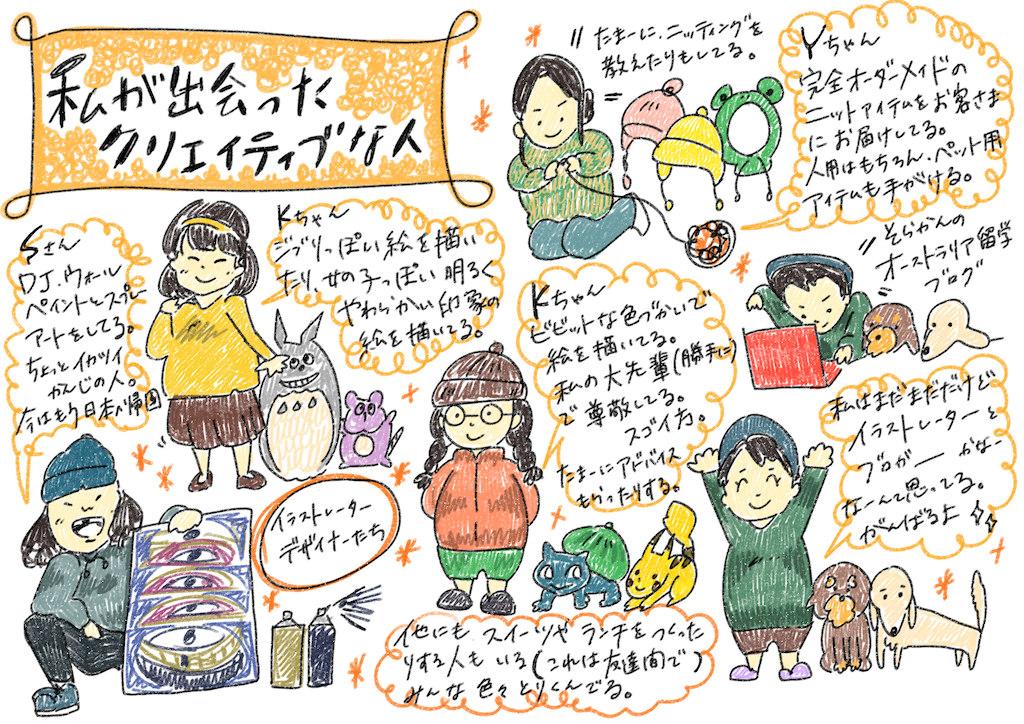 私が出会った
クリエイティブな人
たまーに、ニッティングを
教えたりもしてる。
Yちゃん
完全オーダーメイドの
ニットアイテムをお客さま
にお届けしてる。
人用はもちろん、ペット用
アイテムも手がける。
Sさん
DJ、ウォール
ペイントとスプレー
アートをしてる。
ちょっとイカツイ
かんじの人。
今はもう日本へ帰国
Kちゃん
ジブリっぽい絵を描い
たり、女の子っぽい明るく
やわらかい印象の
絵を描いてる。
Kちゃん
ビビットな色づかいで
絵を描いてる。
私の大先輩(勝手に)
で尊敬してる。
スゴイ方。
たまーにアドバイス
もらったりする。
そらかんの
オーストラリア留学
ブログ
私はまだまだだけど
イラストレーターと
ブロガーかなー
なーんて思ってる。
がんばるよ
イラストレーター
デザイナーたち
他にもスイーツやランチをつくった
りする人もいる(これは友達間で)
みんな色々とりくんでる。